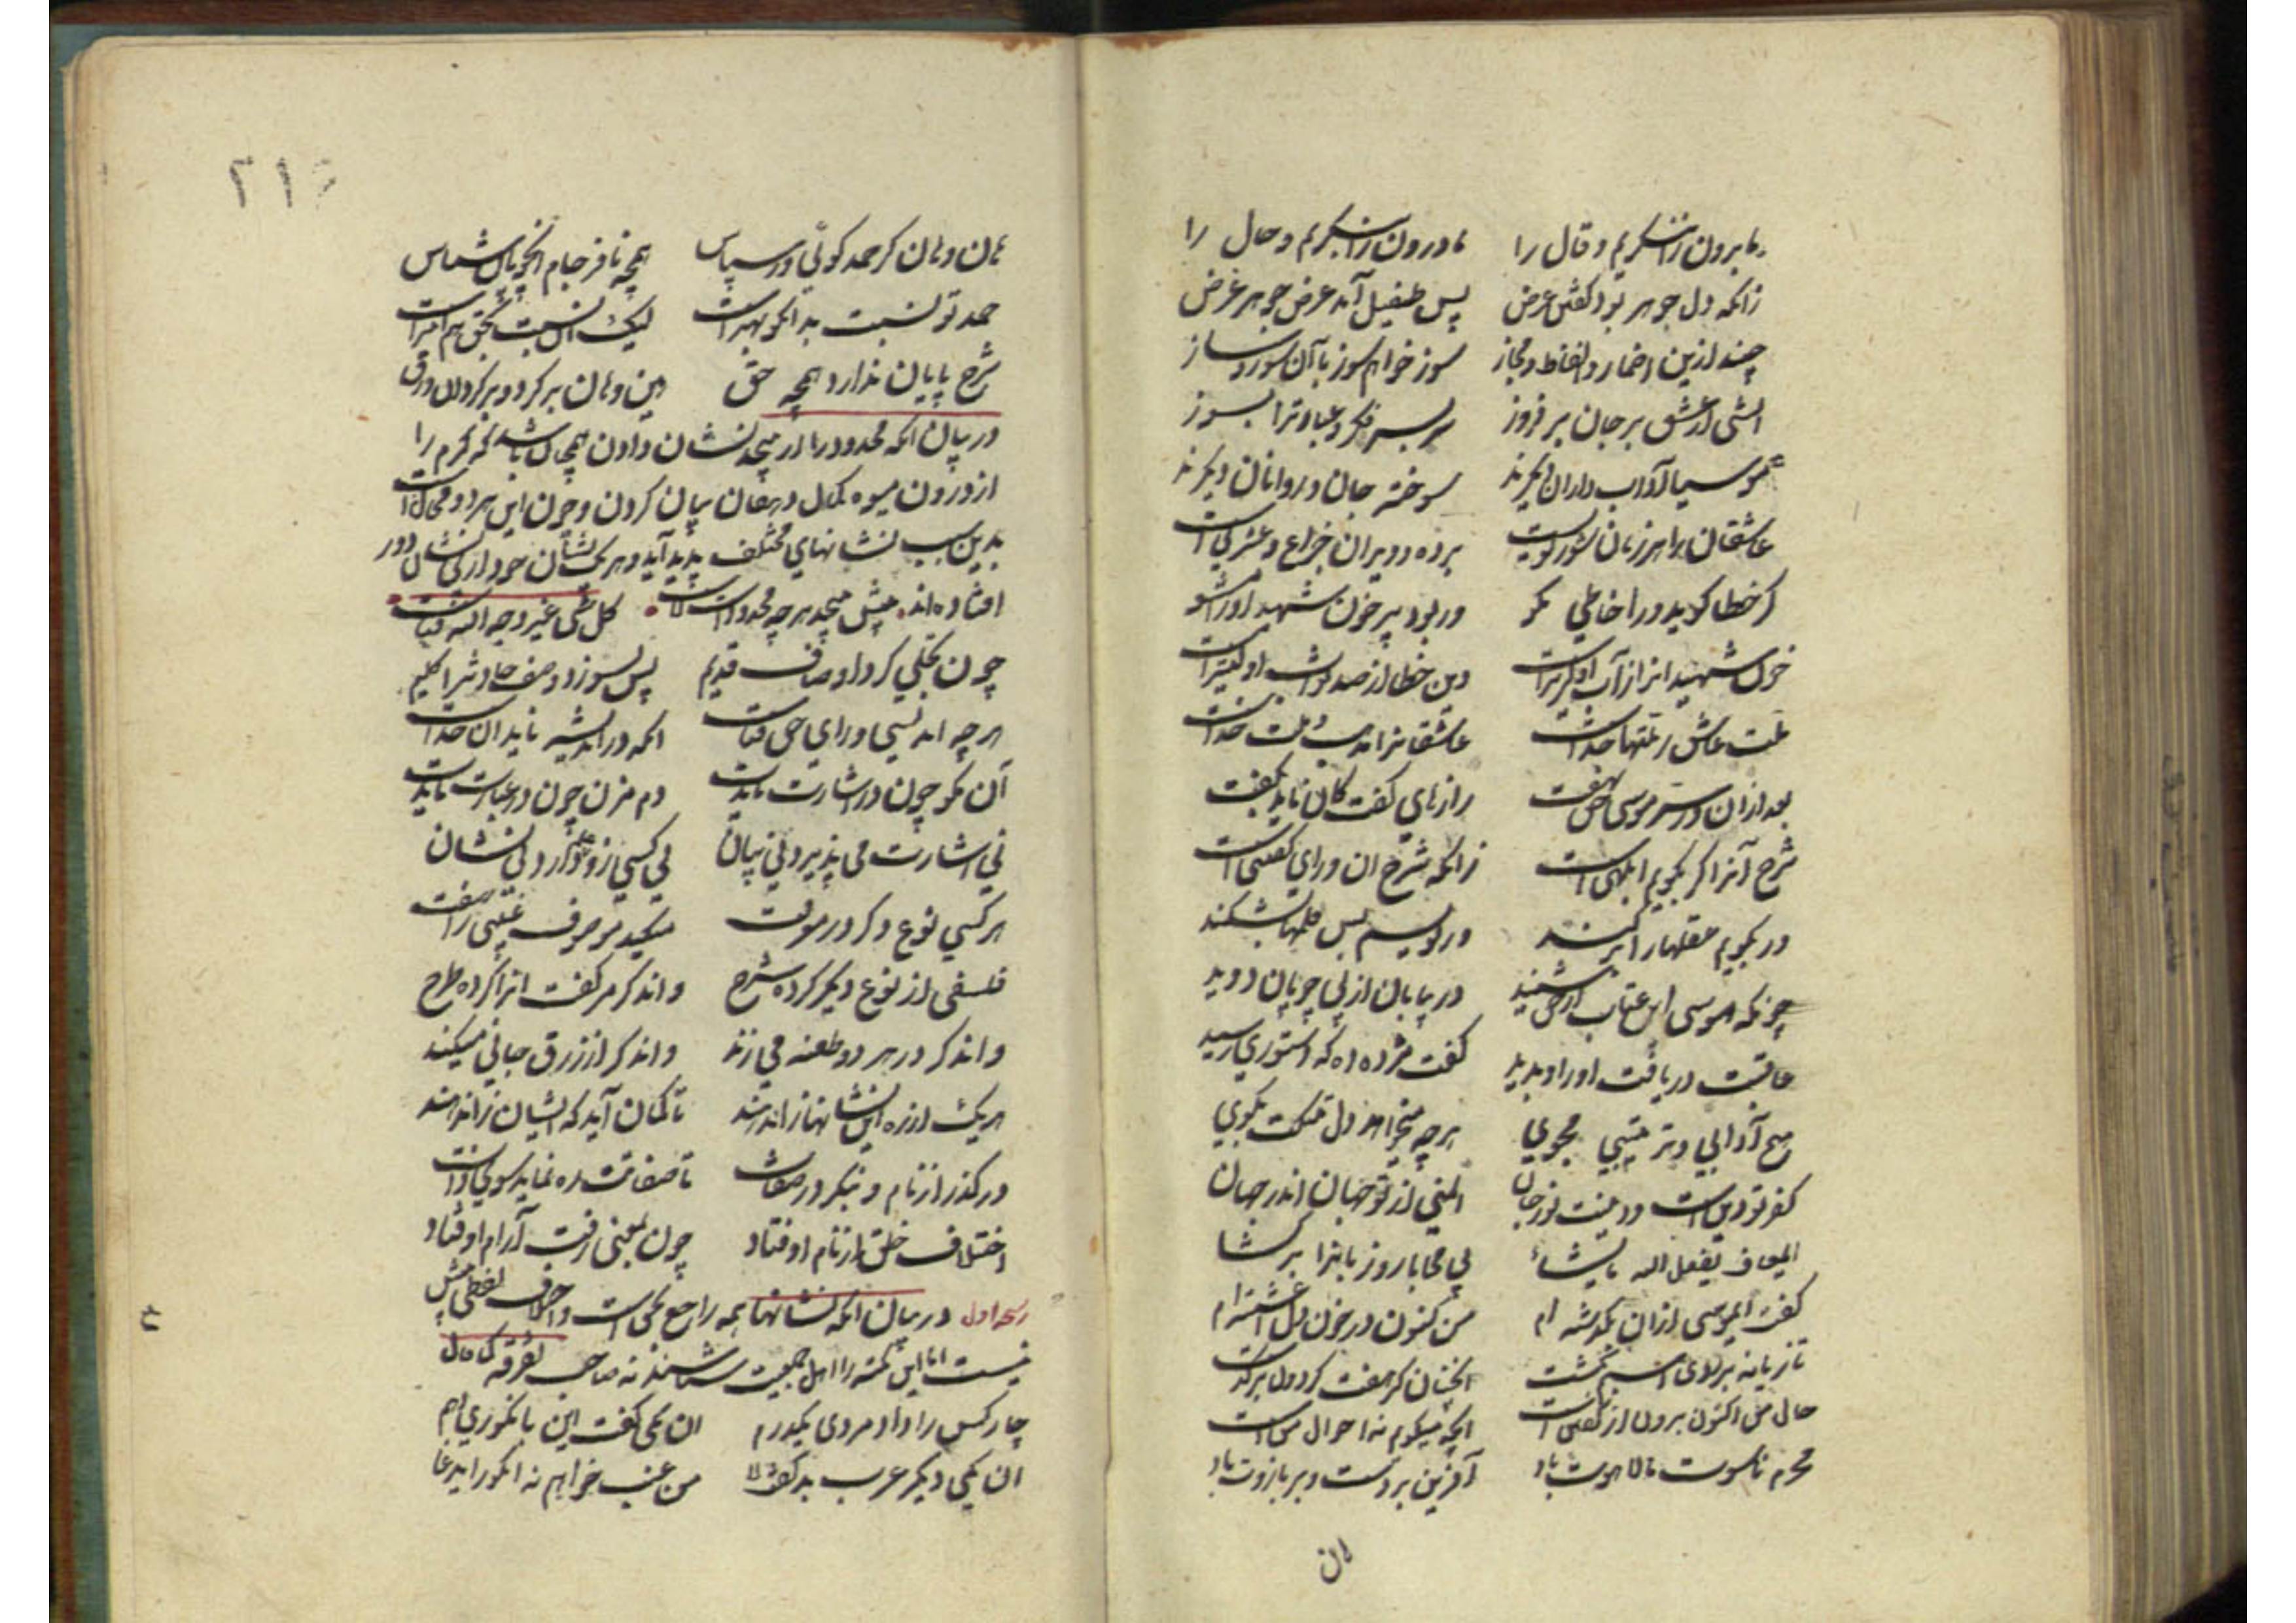 ما برون را ننگریم و قال را ما درون را بنگریم و حال را
زانکه دل جوهر بود گفتن عرض پس طفیل آمد عرض جوهر غرض
چند ازین اضمار و الفاظ و مجاز سوز خواهم سوز با آن سوز ساز
آتشی از عشق بر جان بر فروز سر بسر فکر و عبارت را بسوز
موسیا آداب دانان دیگرند سوخته جان و روانان دیگرند
عاشقان را هر زمان سوزیدنیست برده ویران خراج و عشر نیست
گر خطا گوید ورا خاطی مگو ور بود پر خون شهید او را مشو
خون شهیدانرا ز آب اولیتر است وین خطا از صد صواب اولیتر است
ملت عاشق ز ملتها جداست عاشقانرا مذهب و ملت خداست
بعد از آن در سر موسی حق نهفت رازهای گفت کان ناید بگفت
شرح آنرا گر بگویم ابلهی است زانکه شرح آن ورای آگهی است
ور بگویم عقلها را بر کند ور نویسم بس قلمها بشکند
چونکه موسی این عتاب از حق شنید در بیابان از پی چوپان دوید
عاقبت دریافت او را و بدید گفت مژده ده که دستوری رسید
هیچ آدابی و ترتیبی مجوی هر چه میخواهد دل تنگت بگوی
کفر تو دین است و دینت نور جان ایمنی از تو جهان اندر جهان
ای معاف یفعل الله ما یشاء بی محابا رو زبانرا بر گشا
گفت ای موسی از آن بگذشته ام من کنون در خون دل آغشته ام
تازیانه بر زدی اسبم بگشت
حال من اکنون برون از گفتن است آنچه میگویم نه احوال من است
محرم ناسوت ما لاهوت باد آفرین بر دست و بر بازوت باد
هان
۲۱۶
هان و هان گر حمد گوئی ور سپاس همچو نافرجام آن چوپان شناس
حمد تو نسبت بدان گر بهتر است لیک آن نسبت بحق هم ابتر است
شرح پایان ندارد همچو حق هین دهان بر گرد و بر گردان ورق
در بیان آنکه محدود را از بیحد نشان دادن همچنان باشد که کرم را
از درون میوه بکمال دهقان بیان کردن و چون این هر دو محال است
بدین سبب نشانهای مختلف پدید آید و هر یک نشان خود از بی نشان دور
افتاده اند پیش بیحد هر چه محدود است لاست کل شی غیر وجه الله فناست
چون تجلی کرد اوصاف قدیم پس بسوزد وصف حادث را گلیم
هر چه اندیشی ورای حق فناست آنکه در اندیشه ناید آن خداست
آن مگو چون در اشارت نایدت دم مزن چون در عبارت نایدت
نی اشارت می پذیرد نی بیان نی کسی زو علم دارد نی نشان
هر کسی نوع دگر در معرفت میکند موصوف غیبی را صفت
فلسفی از نوع دیگر کرده شرح واندگر مر گفت آنرا کرده جرح
واندگر در هر دو طعنه می زند واندگر از زرق جانی میکند
هر یک از ره این نشانها زان دهند تا گمان آید که ایشان زان دهند
در گذر از نام و بنگر در صفات تا صفاتت ره نماید سوی ذات
اختلاف خلق از نام اوفتاد چون بمعنی رفت آرام اوفتاد
رشحه اول در بیان آنکه نشانها همه راجع بیکی است و اختلاف لفظی بیش
نیست اما این نکته را اهل جمعیت شناسند نه صاحب تفرقه
چار کس را داد مردی یکدرم آن یکی گفت این بانگوری دهم
آن یکی دیگر عرب بد گفت لا من عنب خواهم نه انگور ای دغا